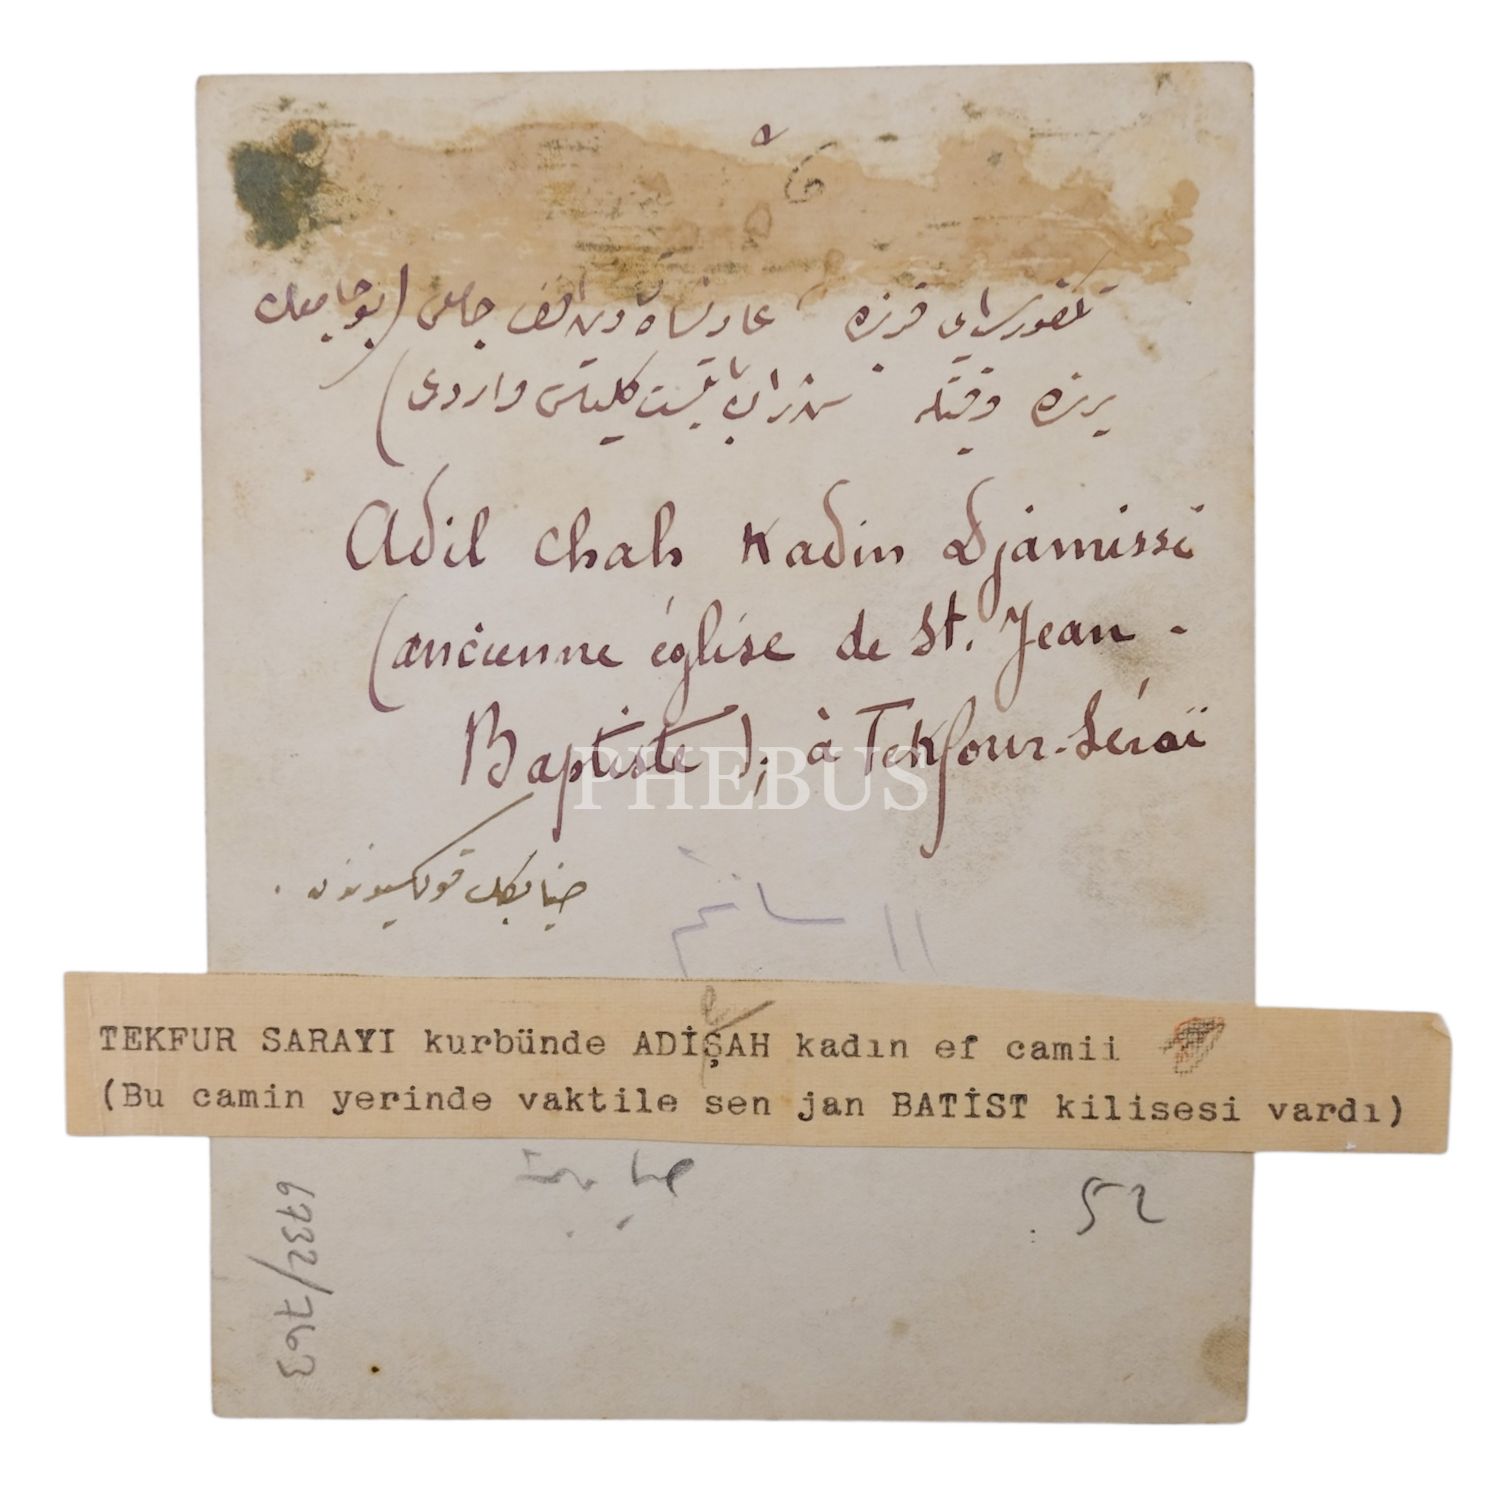 تكفور سرايى قربنده عادلشاه قادين افندى جامعى (بو جامعك
يرنده وقتيله سن ژان باتيست كليساسى واردى)
Adil chah Kadin Djamissi
(ancienne église de St. Jean-
Baptiste), à Tekfour-Séraï
PHEBUS
ضيا بك قوللكسيوننده
TEKFUR SARAYI kurbünde ADİŞAH kadın ef camii
(Bu camin yerinde vaktile sen jan BATİST kilisesi vardı)
52
6732/763